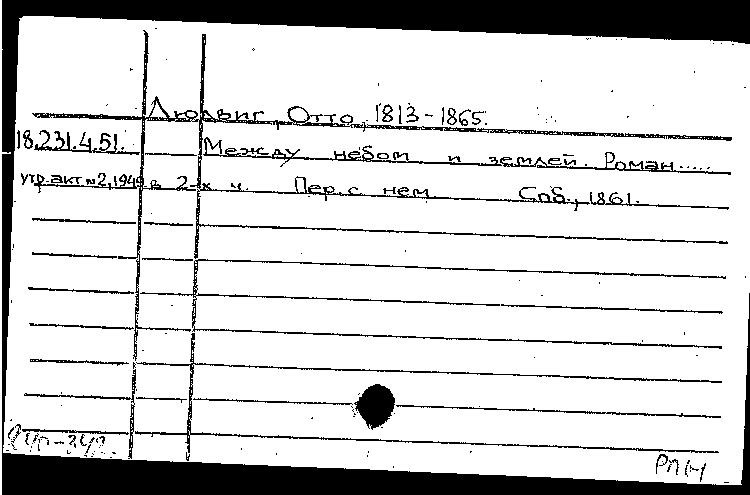 Людвиг, Отто, 1813-1865.
18.231.4.51. Между небом и землей. Роман.....
утр. акт №2, 1949 в 2-х ч. Пер. с нем. Спб., 1861.
РПН